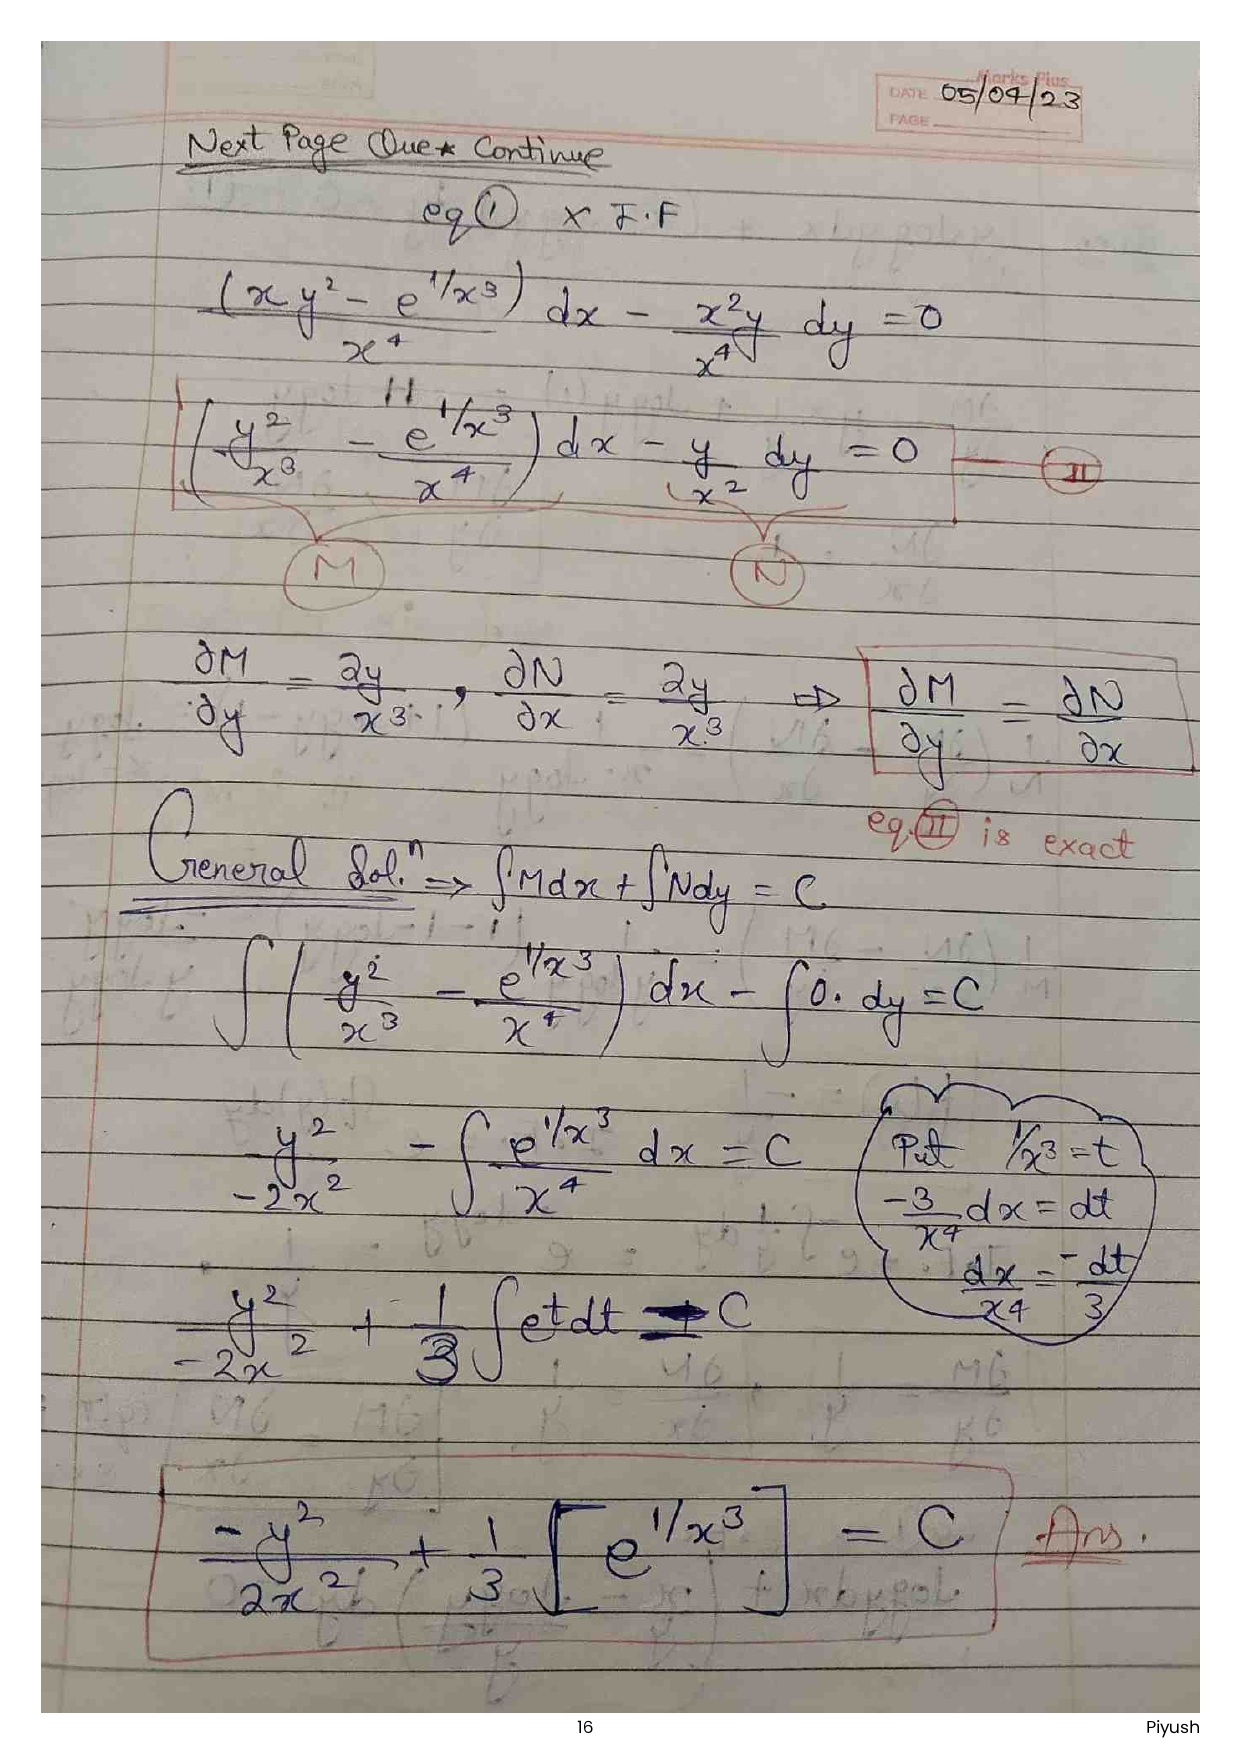 Marks Plus
DATE 05/04/23
PAGE
Next Page Que* Continue
eq ① × I.F
(xy² - e^{1/x³})/x⁴ dx - x²y/x⁴ dy = 0
(y²/x³ - e^{1/x³}/x⁴) dx - y/x² dy = 0 — Ⅱ
M N
∂M/∂y = 2y/x³, ∂N/∂x = 2y/x³ ⇒ ∂M/∂y = ∂N/∂x
eq. Ⅱ is exact
General Sol.ⁿ => ∫Mdx + ∫Ndy = C
∫(y²/x³ - e^{1/x³}/x⁴) dx - ∫0. dy = C
y²/-2x² - ∫ e^{1/x³}/x⁴ dx = C
Put 1/x³ = t
-3/x⁴ dx = dt
dx/x⁴ = -dt/3
y²/-2x² + 1/3 ∫e^t dt = C
-y²/2x² + 1/3 [e^{1/x³}] = C Ans.
16
Piyush